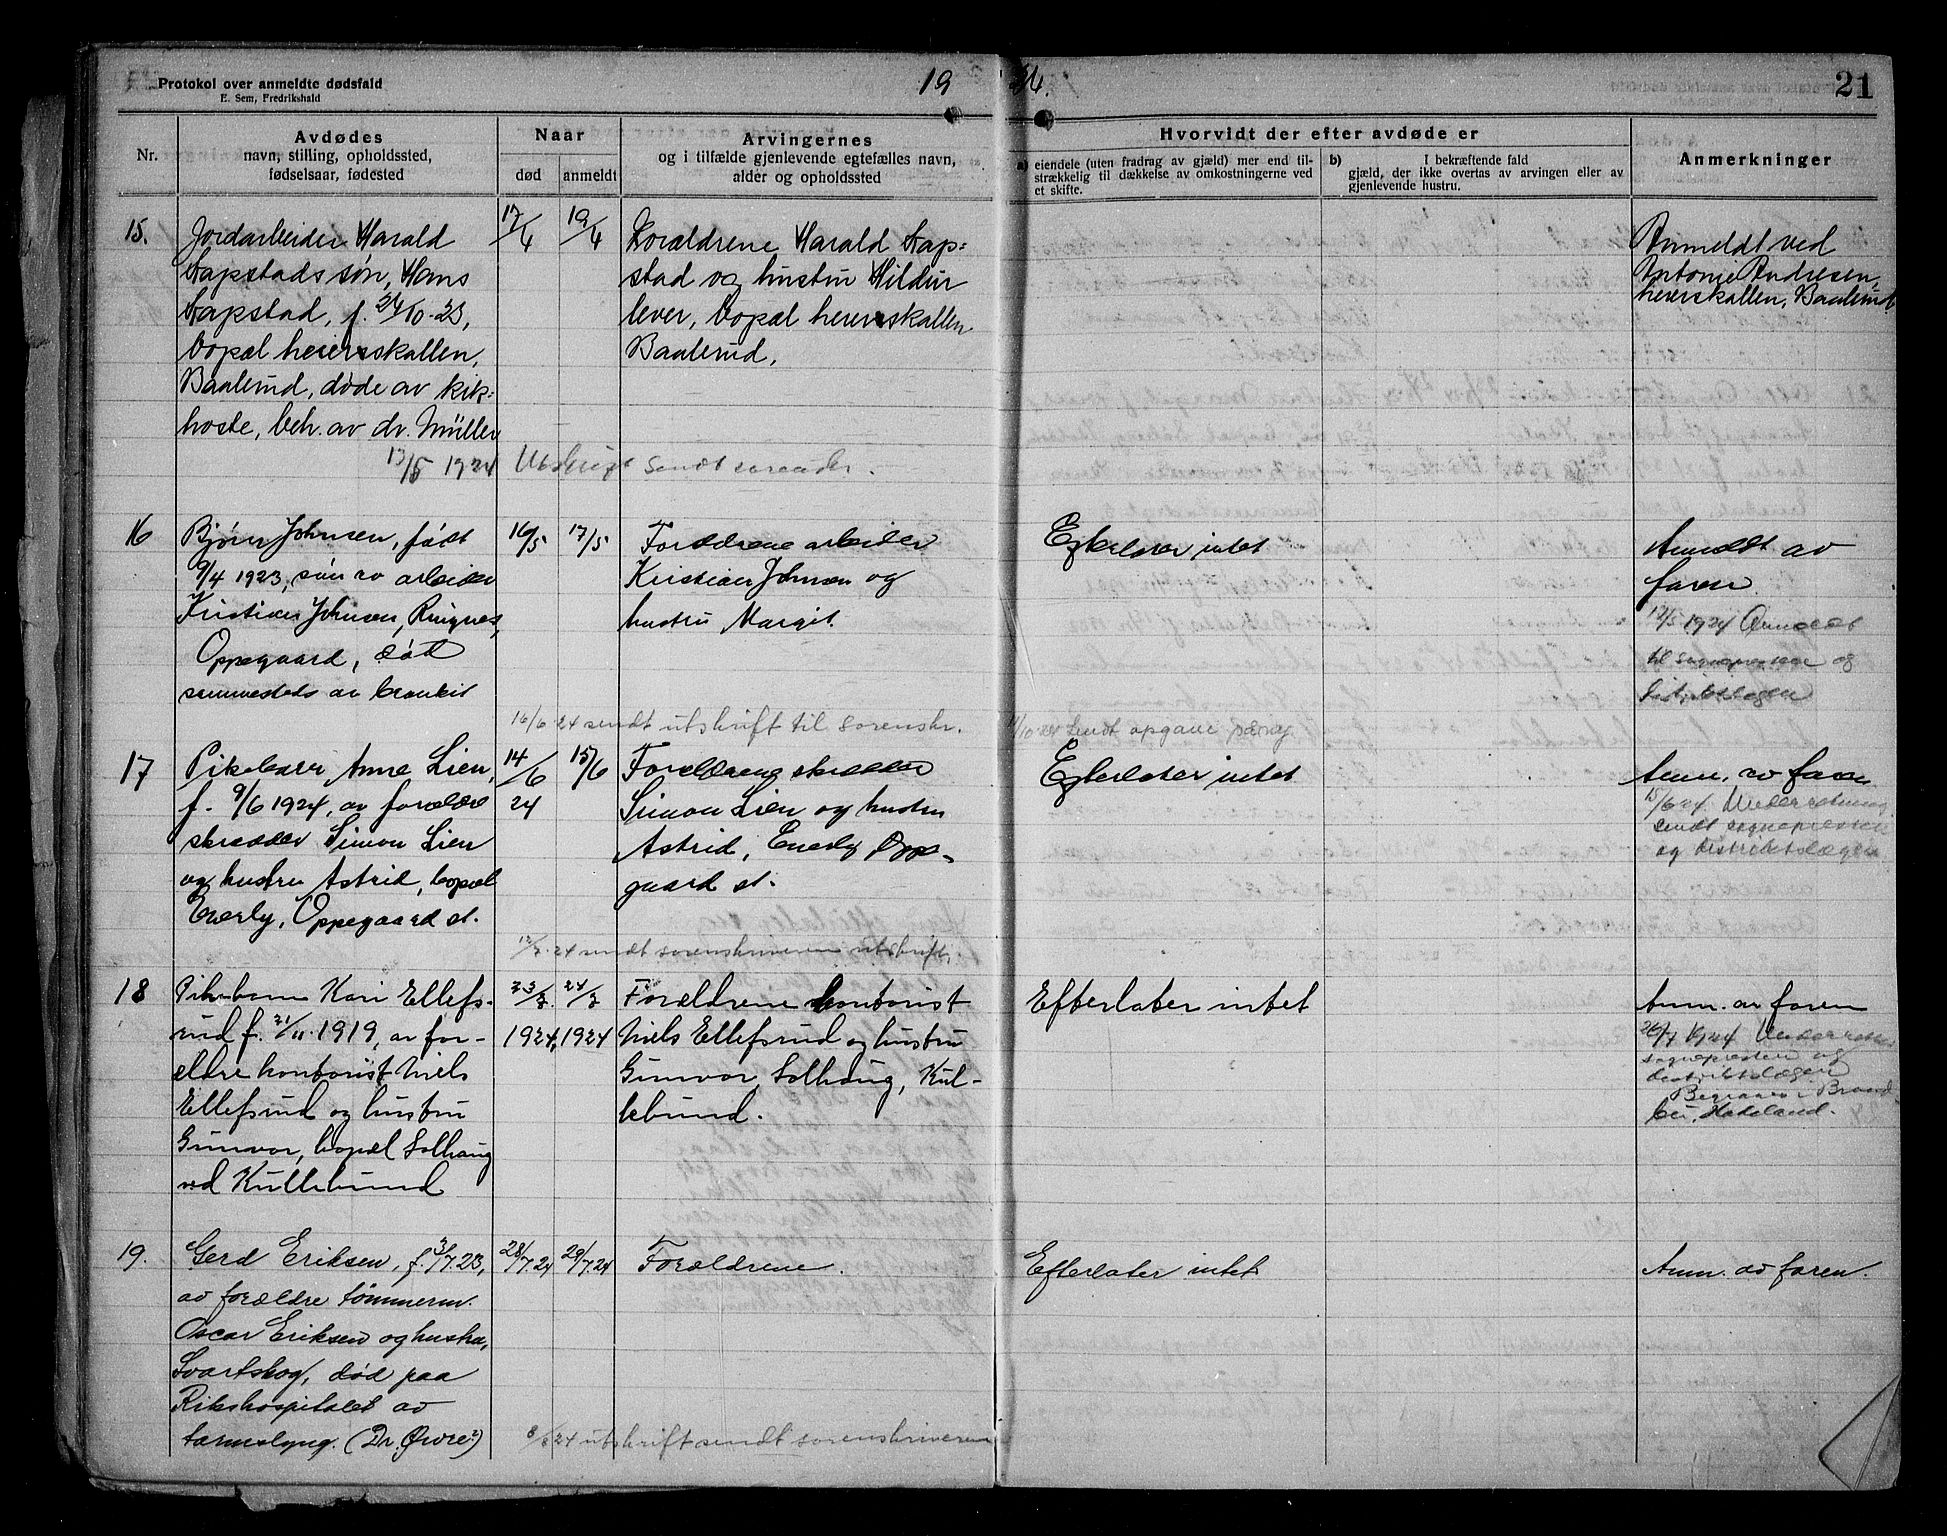 Protokol over anmeldte dødsfald
E. Sem, Fredrikshald
19 24.
21
Nr.
Avdødes
navn, stilling, opholdssted,
fødselsaar, fødested
Naar
død
anmeldt
Arvingernes
og i tilfælde gjenlevende egtefælles navn,
alder og opholdssted
Hvorvidt der efter avdøde er
a) eiendele (uten fradrag av gjæld) mer end til-
strækkelig til dækkelse av omkostningerne ved
et skifte.
b) I bekræftende fald
gjæld, der ikke overtas av arvingen eller av
gjenlevende hustru.
Anmerkninger
15.
Jordarbeider Harald
Sapstads søn, Hans
Sapstad, f. 24/10-23,
bopæl heierskallen,
Baalerud, døde av kik-
hoste, beh. av dr. Müller
17/4
19/4
Forældrene Harald Sap-
stad og hustru Hildur
lever, bopæl heierskallen
Baalerud.
Anmeldt ved
Antonie Andresen,
heierskallen, Baalerud
13/5 1924 Utskrift sendt sorenskr.
16
Bjørn Johnsen, født
9/4 1923, søn av arbeider
Kristian Johnsen, Ringnes,
Oppegaard, død
sammesteds av bronkit
16/5
17/5
Forældrene arbeider
Kristian Johnsen og
hustru Margit.
Efterlater intet
Anmeldt av
faren.
17/5 1924 Anmeldt
til sognepresten og
distriktslægen
16/6-24 sendt utskrift til sorenskr.
11/10-24 Sendt opgave
17
Pikebarn Anne Lien,
f. 9/6 1924, av forældre
skrædder Simon Lien
og hustru Astrid, bopæl
Enerly, Oppegaard st.
14/6
24
15/6
Forældrene skrædder
Simon Lien og hustru
Astrid, Enerly Oppe-
gaard st.
Efterlater intet
Anm. av faren
15/6 24. Underretning
sendt sognepresten
og distriktslægen
12/7-24 sendt sorenskriveren utskrift.
18
Pikebarn Kari Ellefs-
rud f. 21/11-1919, av for-
eldre kontorist Niels
Ellefsrud og hustru
Gunvor, bopæl Solhaug
ved Kullebund
23/7.
1924,
24/7
1924
Forældrene kontorist
Niels Ellefsrud og hustru
Gunvor, Solhaug, Kul-
lebund.
Efterlater intet
Anm. av faren
26/7 1924 Underrettet
sognepresten og
distriktslægen
Begraves i Brand-
bu, Hadeland.
19.
Gerd Eriksen, f. 3/7.23,
av forældre tømmerm.
Oscar Eriksen og hustru,
Svartskog, død paa
Rikshospitalet av
tarmslyng. (Dr. Øvre?)
28/7.24
29/7.24
Forældrene.
Efterlater intet
Anm. av faren.
8/8 24 utskrift sendt sorenskriveren